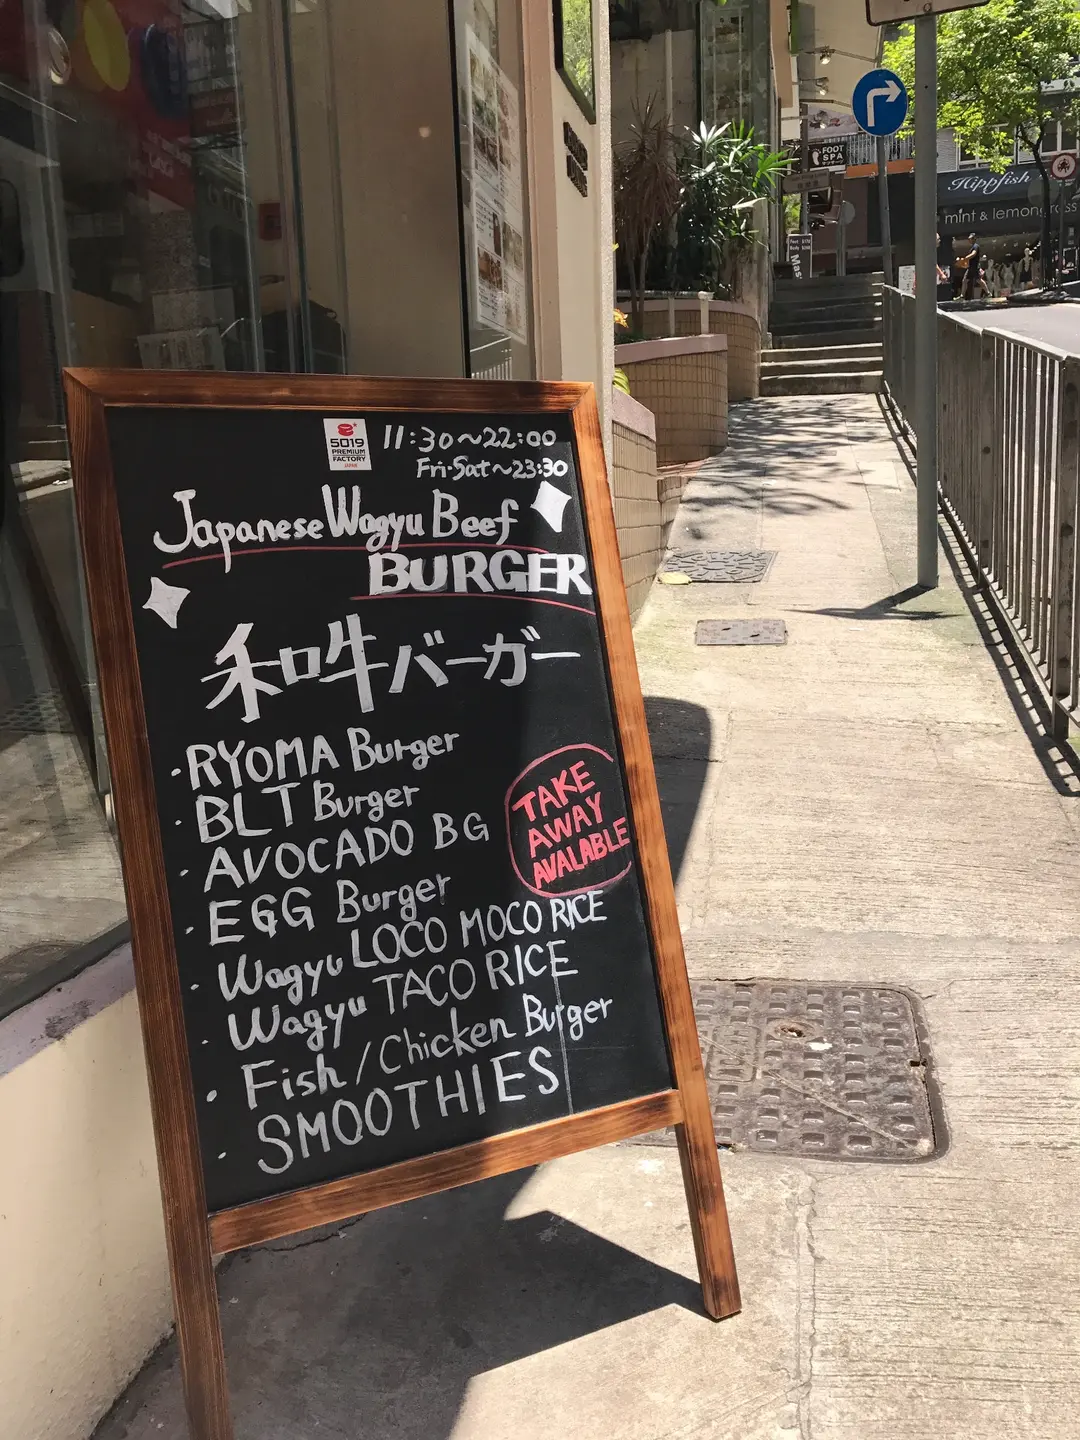 5019
PREMIUM
FACTORY
JAPAN
11:30~22:00
Fri·Sat~23:30
Japanese Wagyu Beef
BURGER
和牛バーガー
· RYOMA Burger
· BLT Burger
· AVOCADO BG
· EGG Burger
· Wagyu LOCO MOCO RICE
· Wagyu TACO RICE
· Fish / Chicken Burger
· SMOOTHIES
TAKE
AWAY
AVALABLE
FOOT
SPA
Hippfish
mint & lemongrass